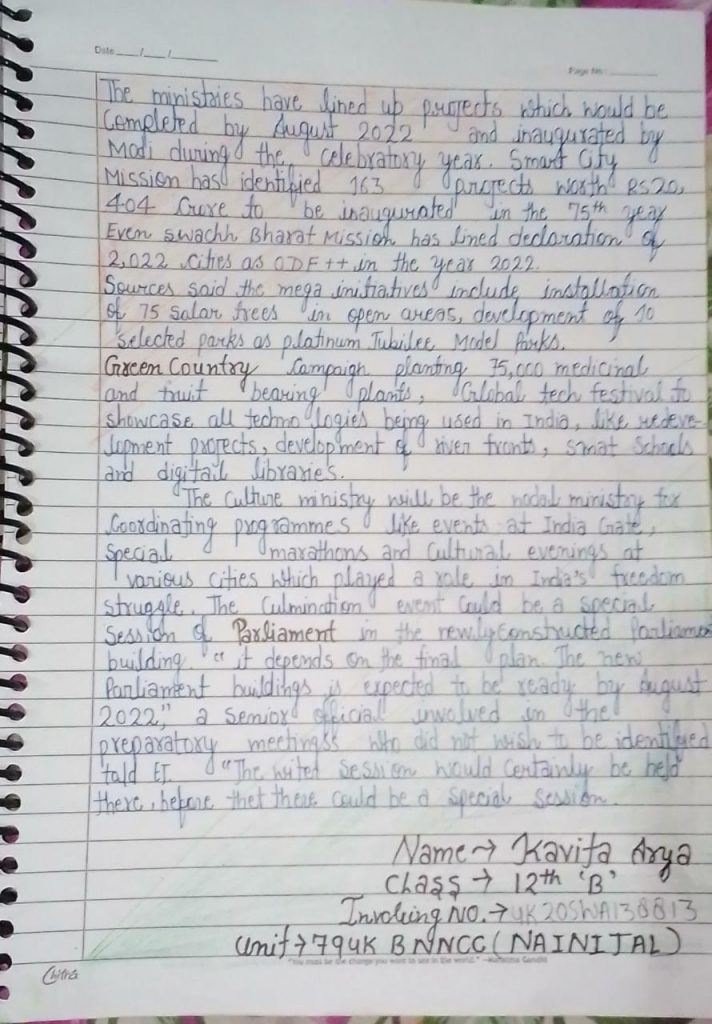 Date ___/___/______
Page No.: ________
The ministries have lined up projects which would be
Completed by August 2022 and inaugurated by
Modi during the celebratory year. Smart City
Mission has identified 163 projects worth RS20,
404 Crore to be inaugurated in the 75th year
Even swachh Bharat Mission has lined declaration of
2,022 cities as ODF++ in the year 2022.
Sources said the mega initiatives include installation
of 75 Solar trees in open areas, development of 10
selected parks as platinum Jubilee Model Parks.
Green Country Campaign planting 75,000 medicinal
and fruit bearing plants, Global tech festival to
showcase all techno logies being used in India, like redeve-
lopment projects, development of river fronts, smat Schools
and digitail libraries.
The Culture ministry will be the nodal ministry for
Coordinating programmes like events at India Gate,
Special marathons and Cultural evenings at
various cities which played a role in India's freedom
struggle. The Culmination event Could be a special
Session of Parliament in the newly constructed Parliamen
building. "it depends on the final plan. The new
Parliament buildings is expected to be ready by August
2022," a senior official involved in the
preparatory meetingss who did not wish to be identifyed
told ET. "The Session would Certainly be held
there, before thet there Could be a Special Session.
Name → Kavita Arya
Class → 12th 'B'
NO. → UK20SWA138813
Unit → 79 UK BN NCC (NAINITAL)
"You must be the change you want to see in the world." —Mahatma Gandhi
Chitra